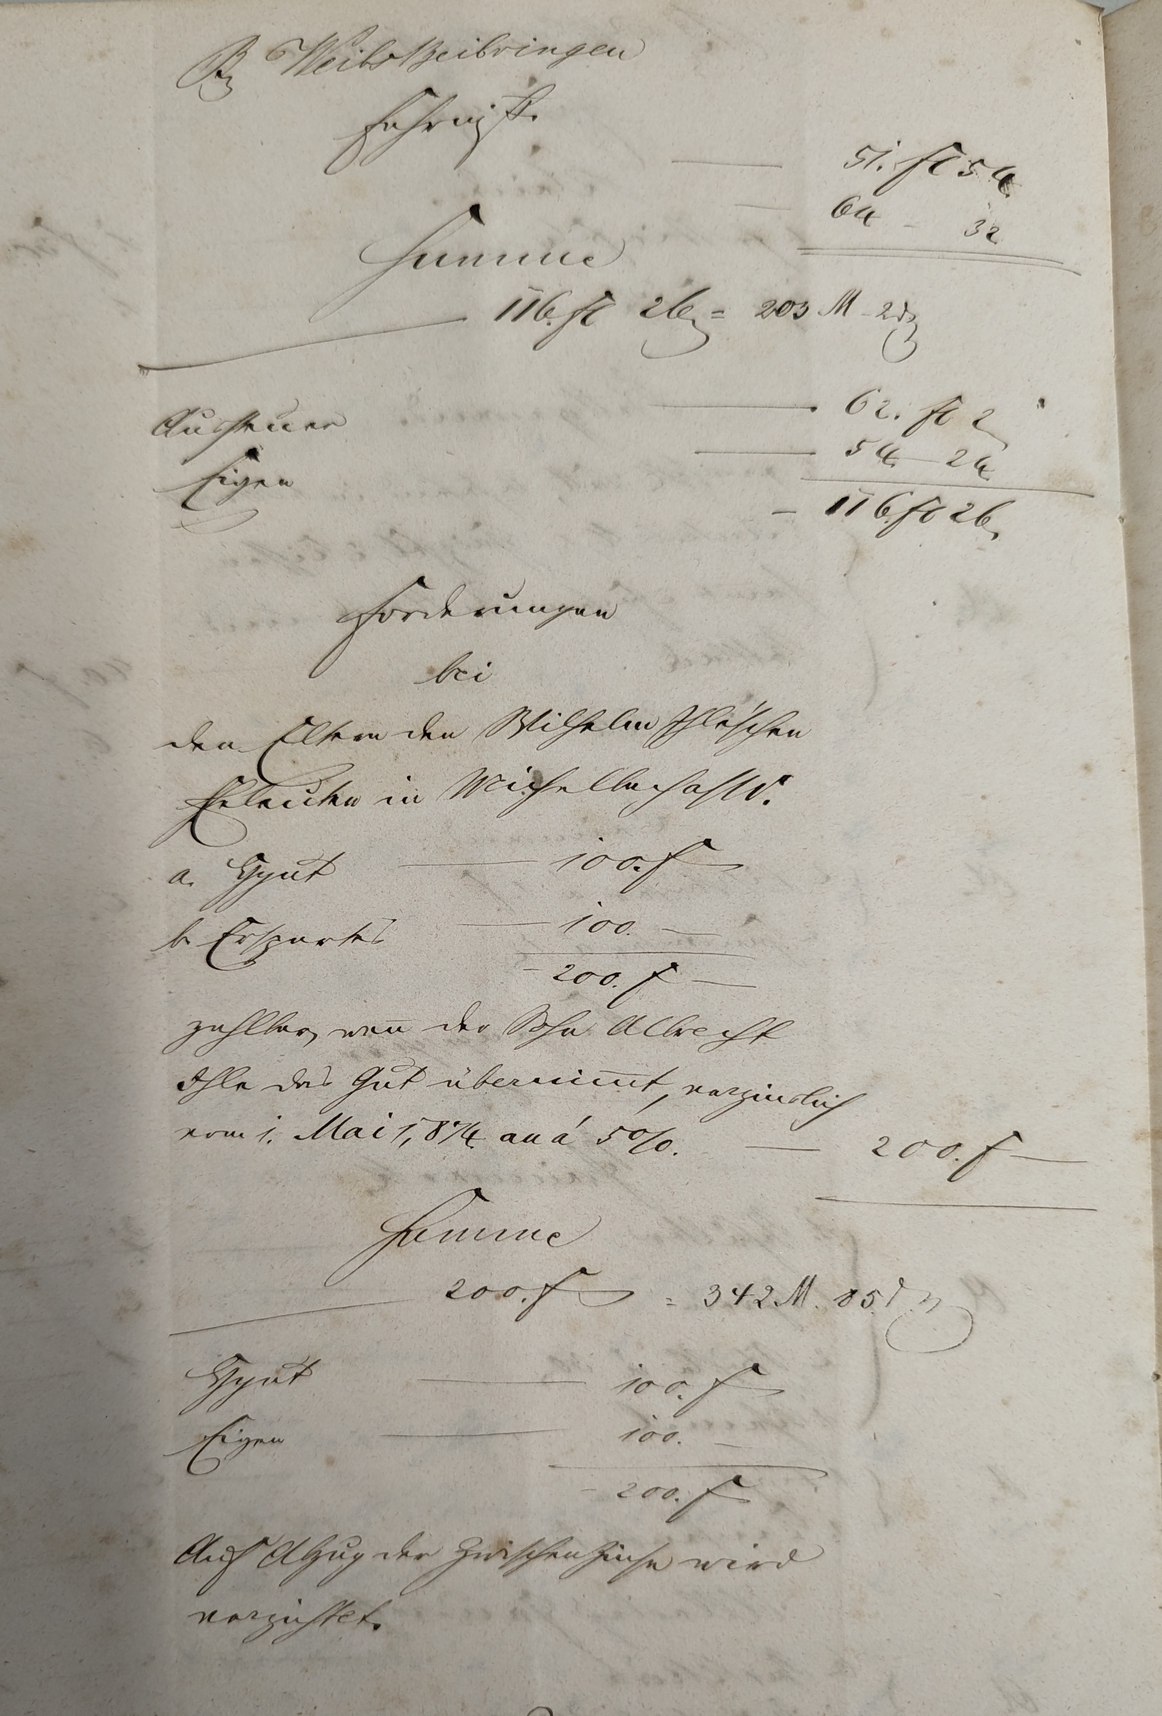 B. Weibs Beibringen
Fahrniß.
— 51. fl 54
— 64 - 32
Summe
116. fl 26 = 203 M - 2
Aussteuer — 62. fl 2
Eigen — 54 - 24
— 116. fl 26
Forderungen
bei
den Eltern den Wilhelm
Eheleuten in Michelbach
a. Hgut — 100. f —
b. Erspartes — 100. —
- 200. f —
zahlbar, wenn der Sohn Albrecht
Ihle das Gut übernimmt, verzinslich
vom 1. Mai 1874 an á 5%. — 200. f —
Summe
200. f — = 342 M. 85
Hgut — 100. f
Eigen — 100. —
- 200. f
Auf Abzug der Zwischenzinse wird
verzichtet.